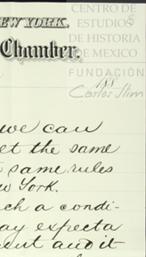 NEW YORK.
Chamber.
CENTRO DE
ESTUDIOS
DE HISTORIA
DE MEXICO
FUNDACIÓN
Carlos Slim
we can
et the same
same rules
ew York.
ch a condi-
ay expecta
ent and it